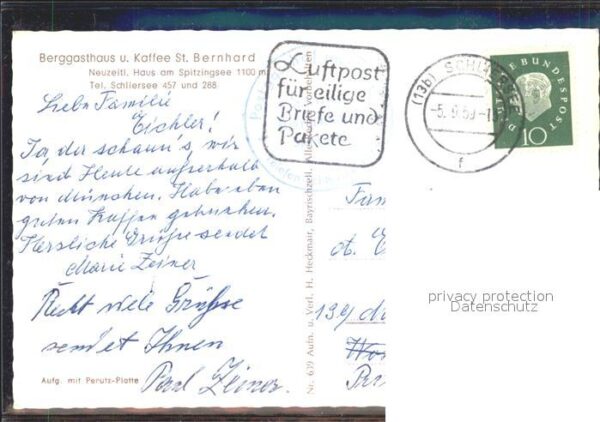 Berggasthaus u. Kaffee St. Bernhard
Neuzeitl. Haus am Spitzingsee 1100 m
Tel. Schliersee 457 und 288
Liebe Familie
Eichler!
Ja, da schaun's, wir
sind Heute ausserhalb
von München. Habe eben
guten Kaffee getrunken.
Herzliche Grüße sendet
Marie Zeiner
Recht viele Grüsse
sendet Ihnen
Paul Zeiner.
Aufg. mit Perutz-Platte
Luftpost
für eilige
Briefe und
Pakete
(13b) SCHLIERSEE
-5.9.59-
f
DEUTSCHE BUNDESPOST
10
Nr. 639 Aufn. u. Verl. H. Heckmair, Bayrischzell. Alle Rechte Vorbehalten
Fam
13a
privacy protection
Datenschutz